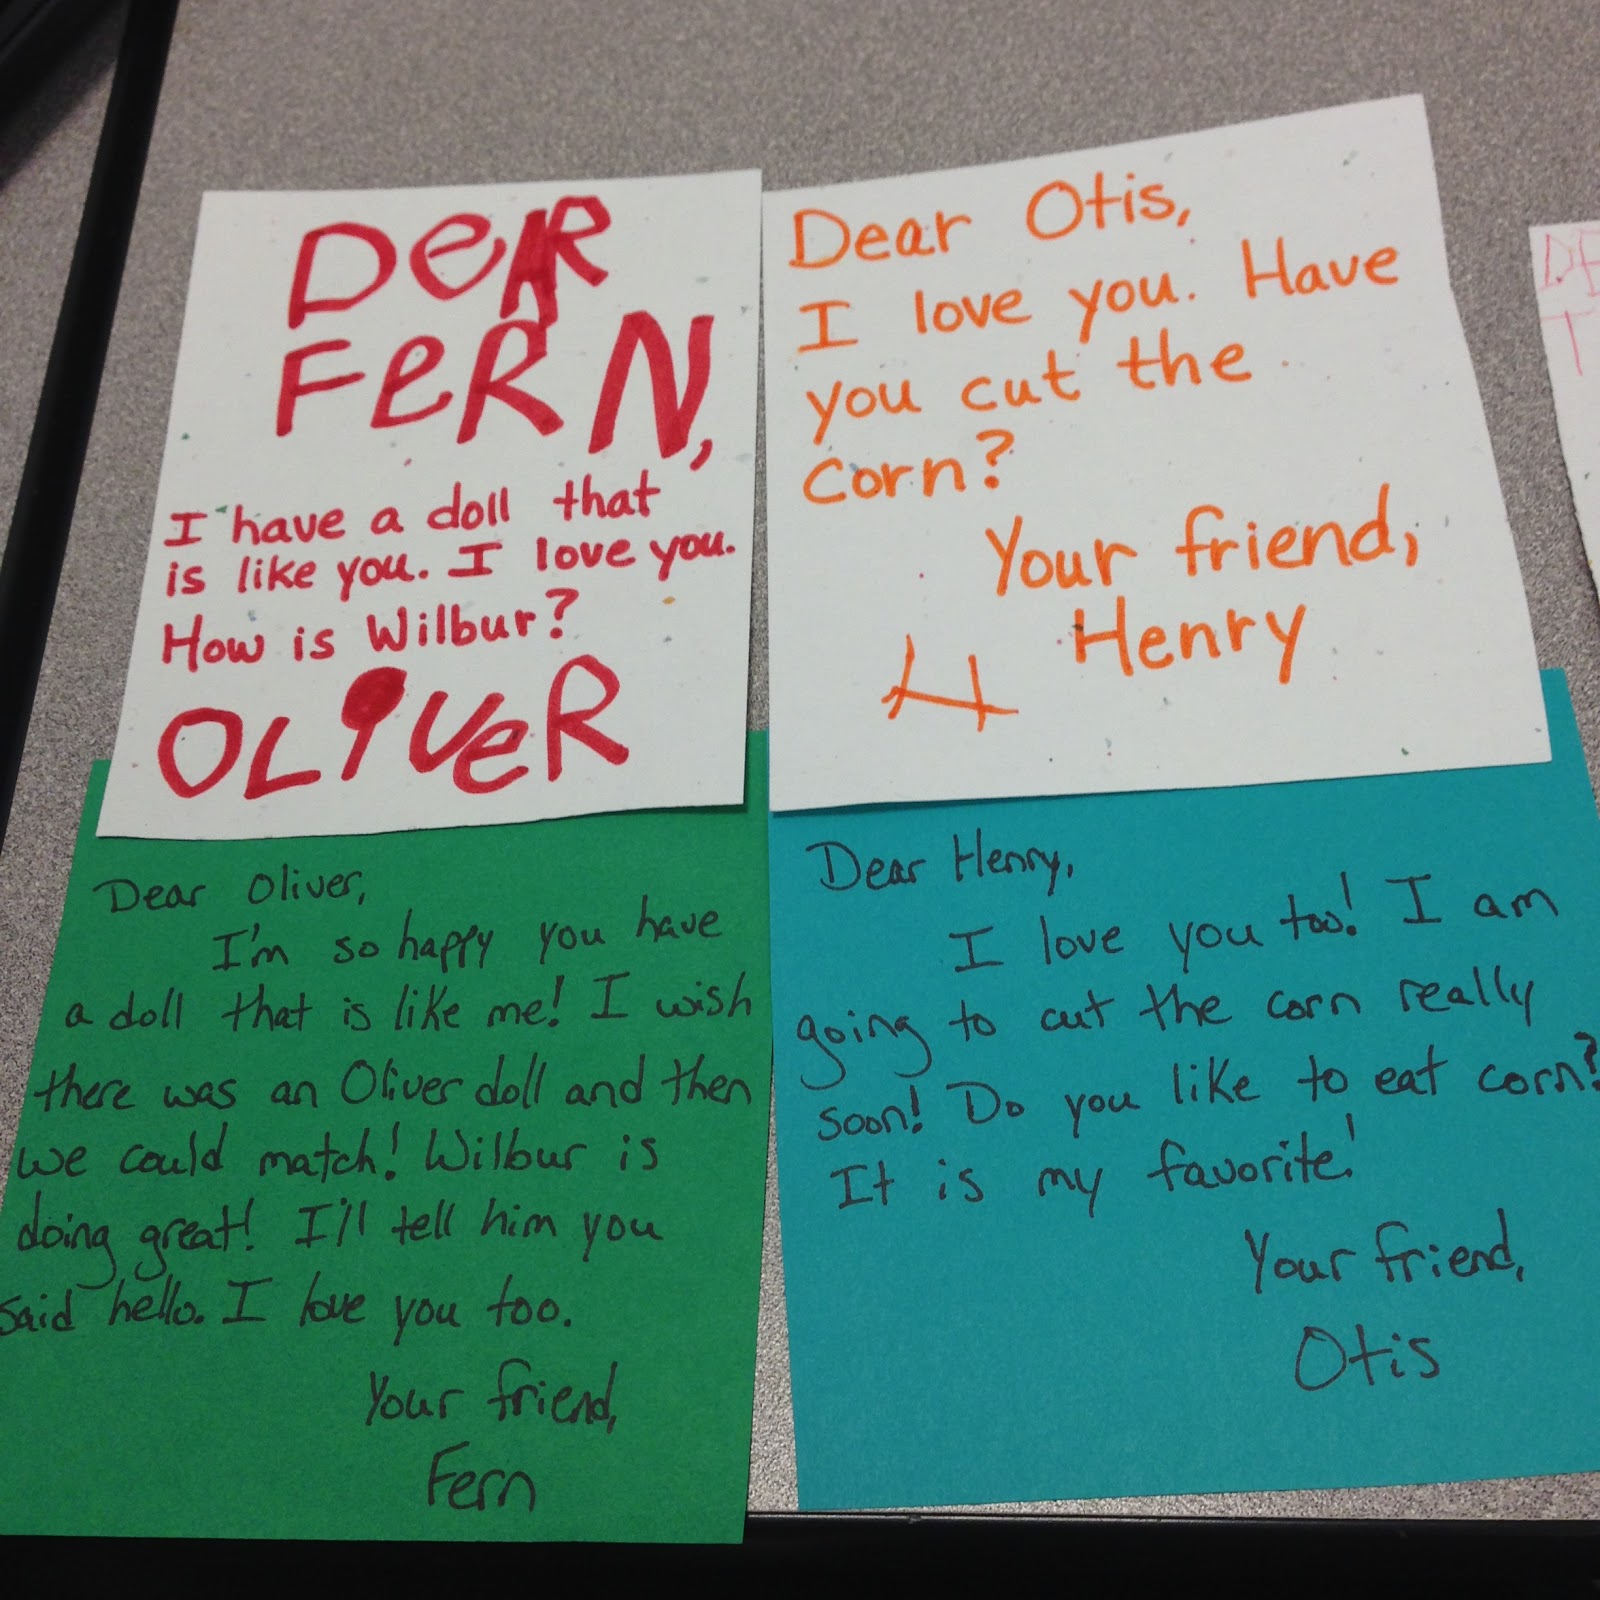 DeAR
FeRN,
I have a doll that
is like you. I love you.
How is Wilbur?
OLiVeR
Dear Otis,
I love you. Have
you cut the
corn?
Your friend,
Henry
H
Dear Oliver,
I'm so happy you have
a doll that is like me! I wish
there was an Oliver doll and then
we could match! Wilbur is
doing great! I'll tell him you
said hello. I love you too.
Your friend,
Fern
Dear Henry,
I love you too! I am
going to cut the corn really
soon! Do you like to eat corn?
It is my favorite!
Your friend,
Otis